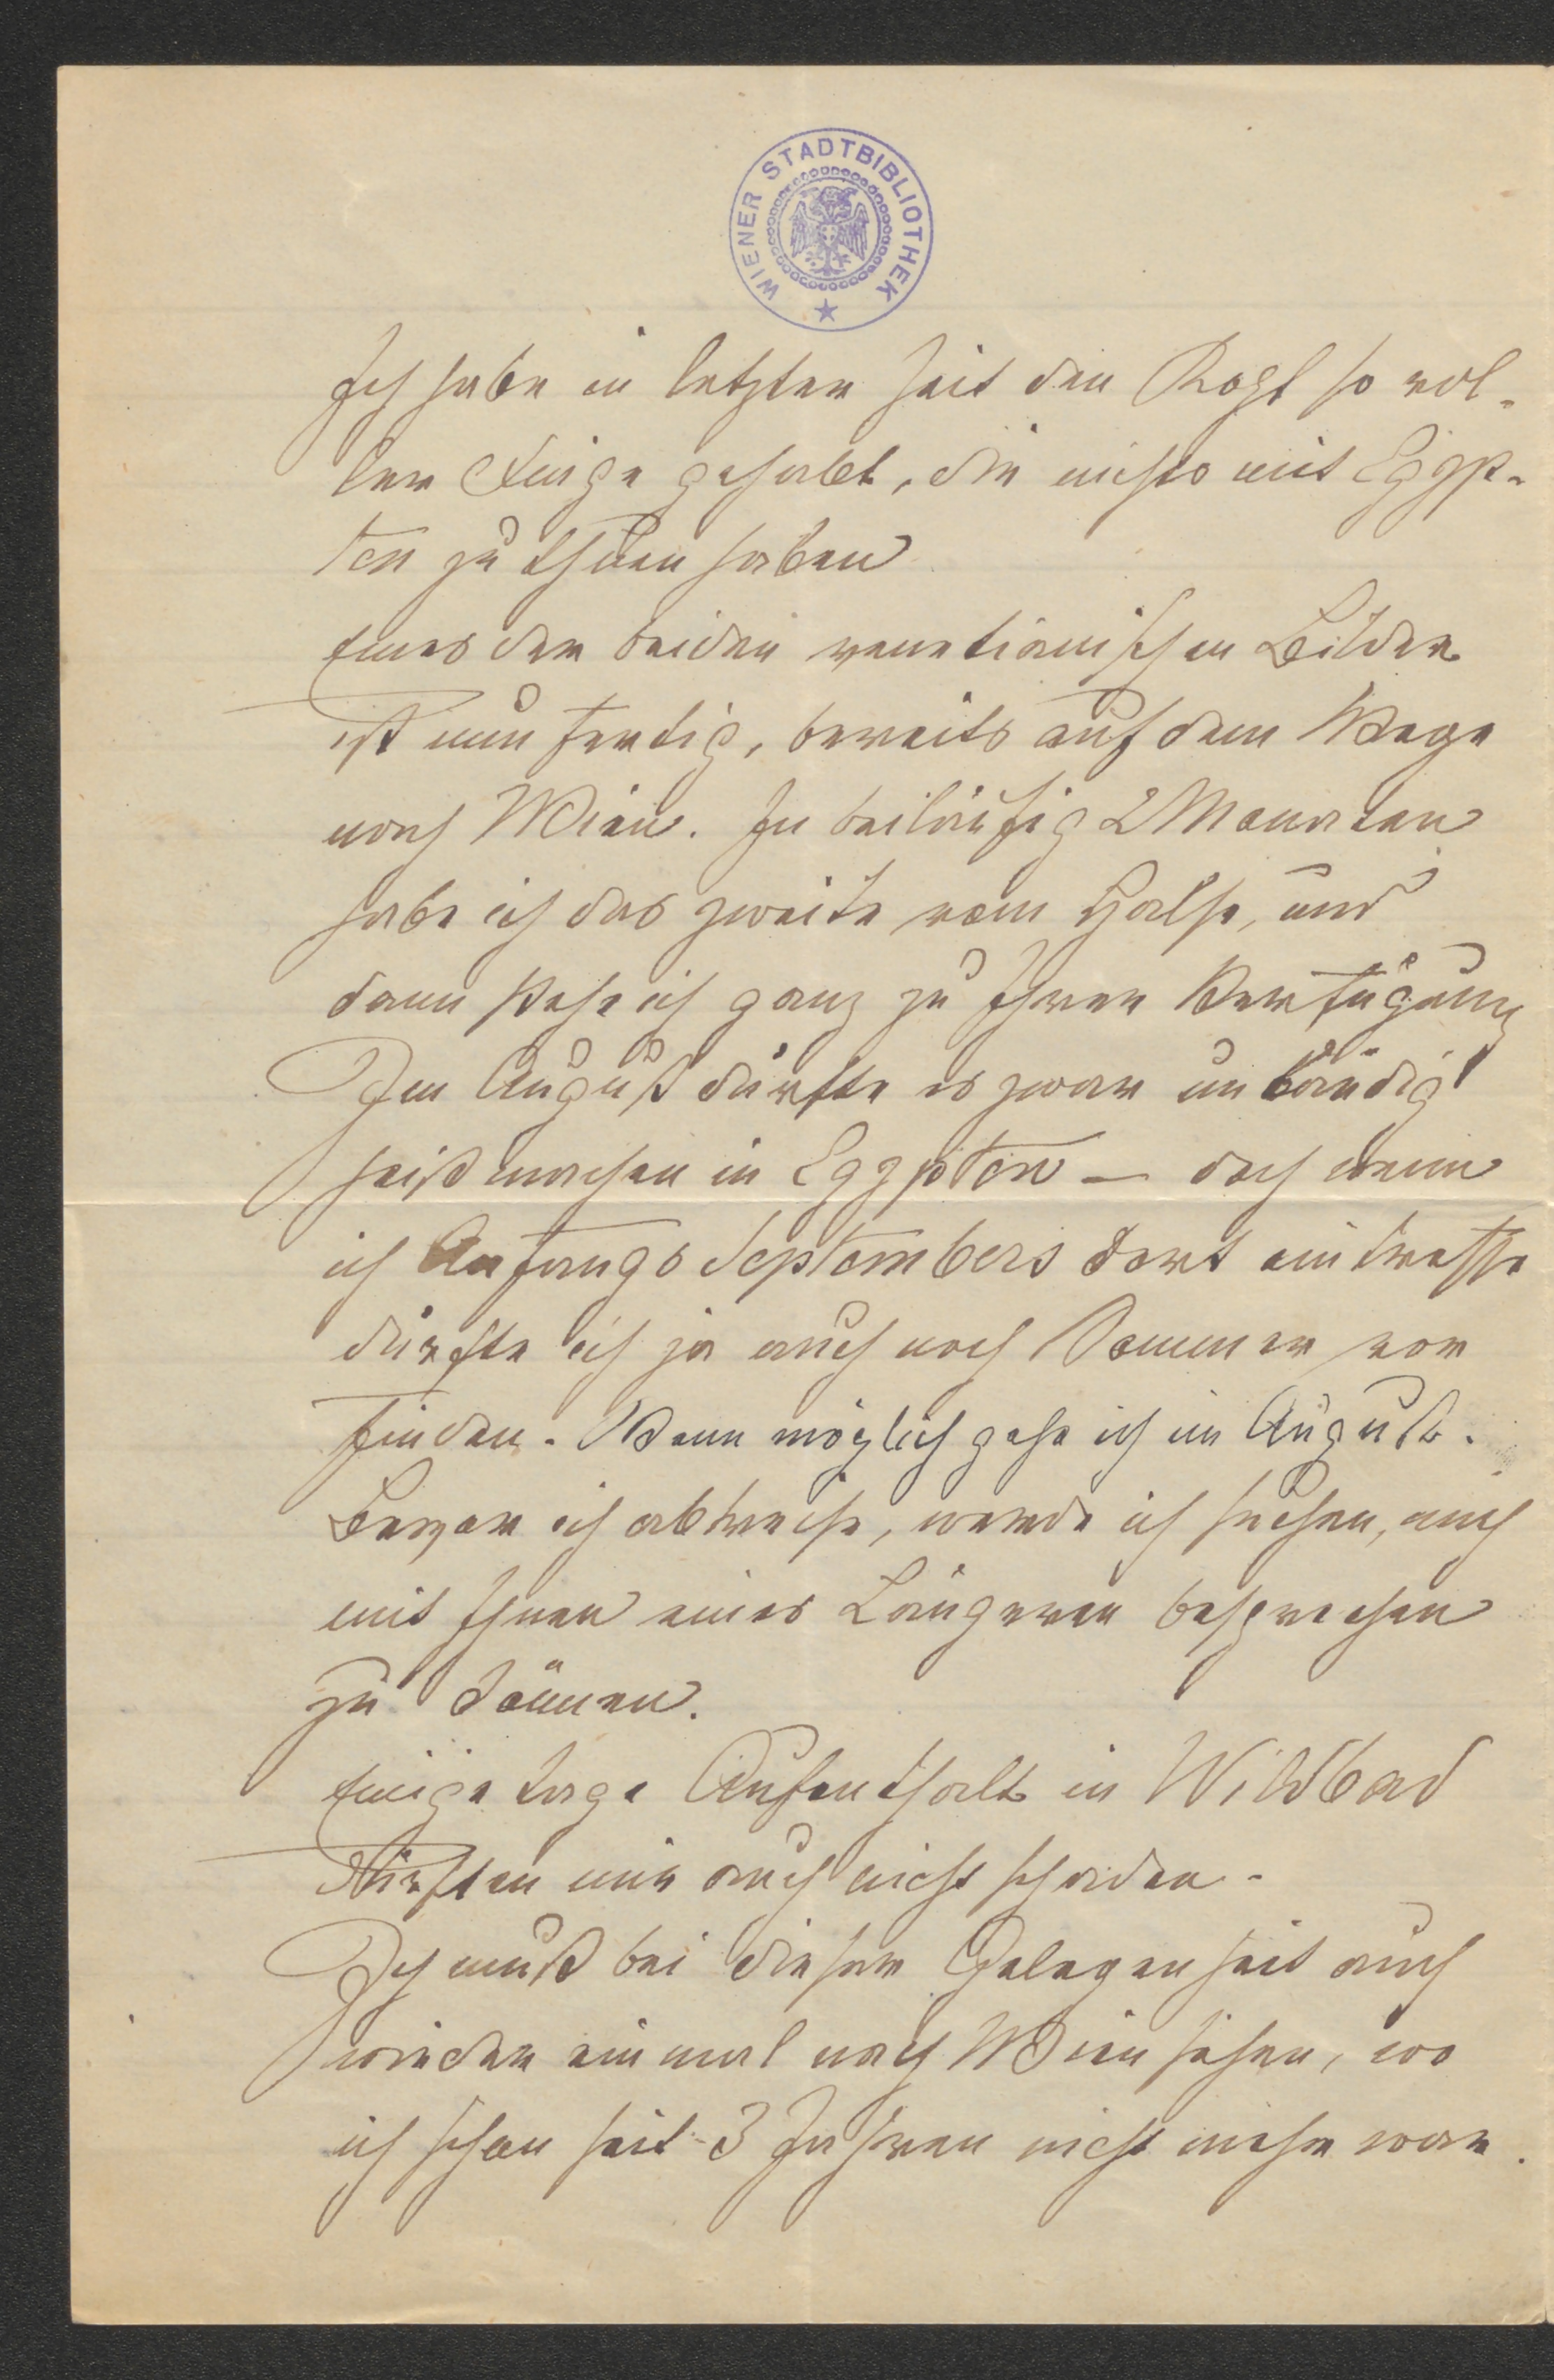 WIENER STADTBIBLIOTHEK
Ich habe in letzter Zeit den Kopf so vol-
ler Dinge gehabt, die nichts mit Egyp-
ten zu thuen haben
Eines der beiden venetianischen Bilder
ist nun fertig, bereits auf dem Wege
nach Wien. In beiläufig 2 Monaten
habe ich das zweite vom Halse, und
dann stehe ich ganz zu Ihrer Verfügung
Im August dürfte es zwar unbändig
heiß machen in Egypten — doch wenn
ich Anfangs Septembers dort eintreffe
dürfte ich ja auch noch Sommer vor
finden. Wenn möglich gehe ich im August.
Bevor ich abreise, werde ich suchen, auch
mit Ihnen eines Längeren besprechen
zu können.
Einige Tage Aufenthalt in Wildbad
dürften mir auch nicht schaden.
Ich muß bei dieser Gelegenheit auch
wieder einmal nach Wien sehen, wo
ich schon seit 3 Jahren nicht mehr war.